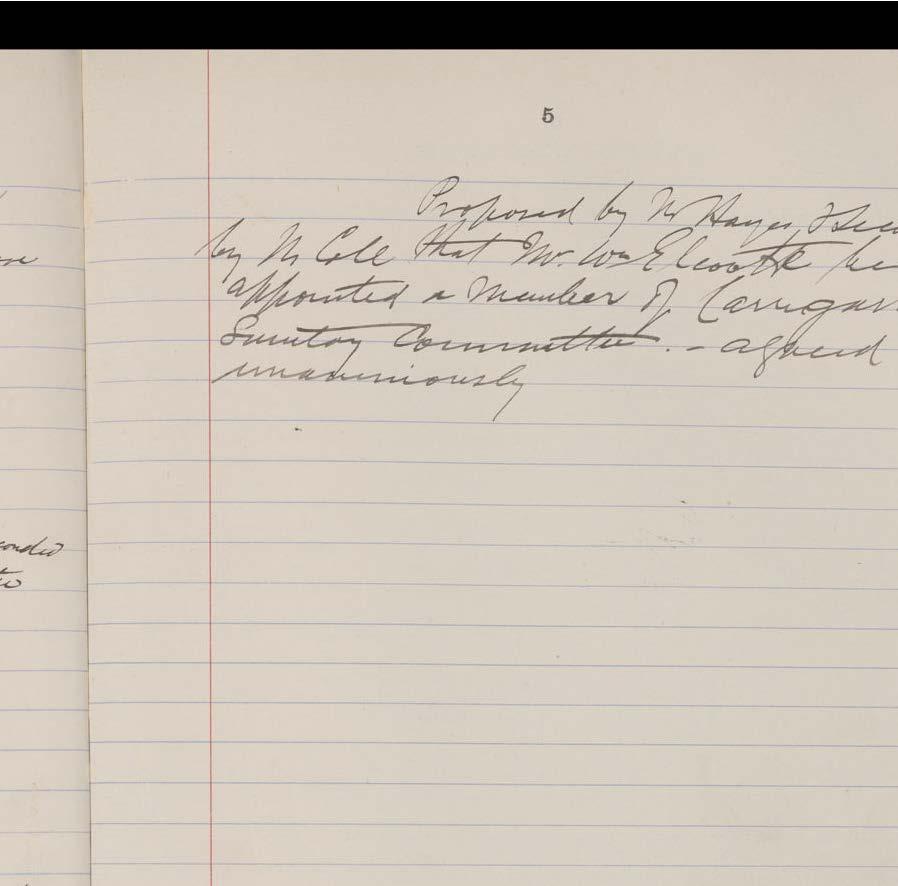 5
Proposed by Mr Hayes, & Sec
by Mr Cole that Mr. Wm Elcoate be
appointed a Member of Carrigar
Sanitary Committee. - agreed
unanimously
onded